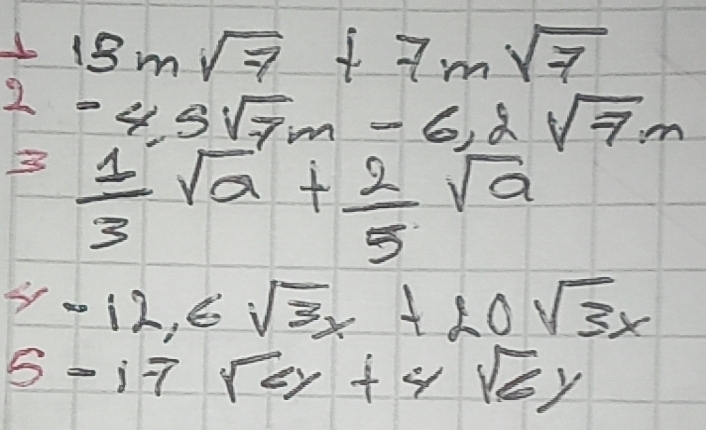 1 15m√7 + 7m√7
2 -4,5√7m - 6,2√7m
3 1/3 √a + 2/5 √a
4 -12,6√3x + 20√3x
5 -17√6y + 4√6y